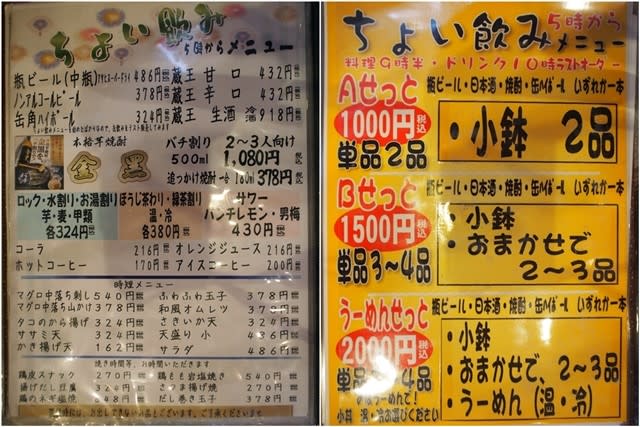 ちょい飲み
5時からメニュー
瓶ビール(中瓶)アサヒスーパードライ 486円 蔵王 甘口 432円
ノンアルコールビール 378円 蔵王 辛口 432円
缶角ハイボール 324円 蔵王 生酒 冷 918円
本格芋焼酎
金 黒
バチ割り 2~3人向け
500ml 1,080円
追っかけ焼酎 一合 180ml 378円
ロック・水割り・お湯割り
芋・麦・甲類
各324円
ほうじ茶わり・緑茶割り
温・冷
各380円
サワー
パンチレモン・男梅
430円
コーラ 216円 オレンジジュース 216円
ホットコーヒー 170円 アイスコーヒー 200円
マグロ中落ち刺し 540円 ふわふわ玉子 378円
マグロ中落ち山かけ 378円 和風オムレツ 378円
タコのから揚げ 324円 さきいか天 324円
ササミ天 324円 天盛り 小 486円
かき揚げ天 162円 サラダ 486円
焼き時間等、お時間いただきます
鶏皮スナック 270円 鶏もも岩塩焼き 540円
揚げだし豆腐 324円 さつま揚げ焼 270円
鶏のネギ塩焼 378円 だし巻き玉子 378円
ちょい飲み 5時から
メニュー
料理9時半・ドリンク10時ラストオーダー
Aせっと
1000円 税込
単品2品
瓶ビール・日本酒・焼酎・缶ハイボール いずれか一本
・小鉢 2品
Bせっと
1500円 税込
単品3~4品
瓶ビール・日本酒・焼酎・缶ハイボール いずれか一本
・小鉢
・おまかせで
2~3品
うーめんせっと
2000円 税込
瓶ビール・日本酒・焼酎・缶ハイボール いずれか一本
・小鉢
・おまかせで、2~3品
・うーめん(温・冷)
小丼 温・冷お選びください